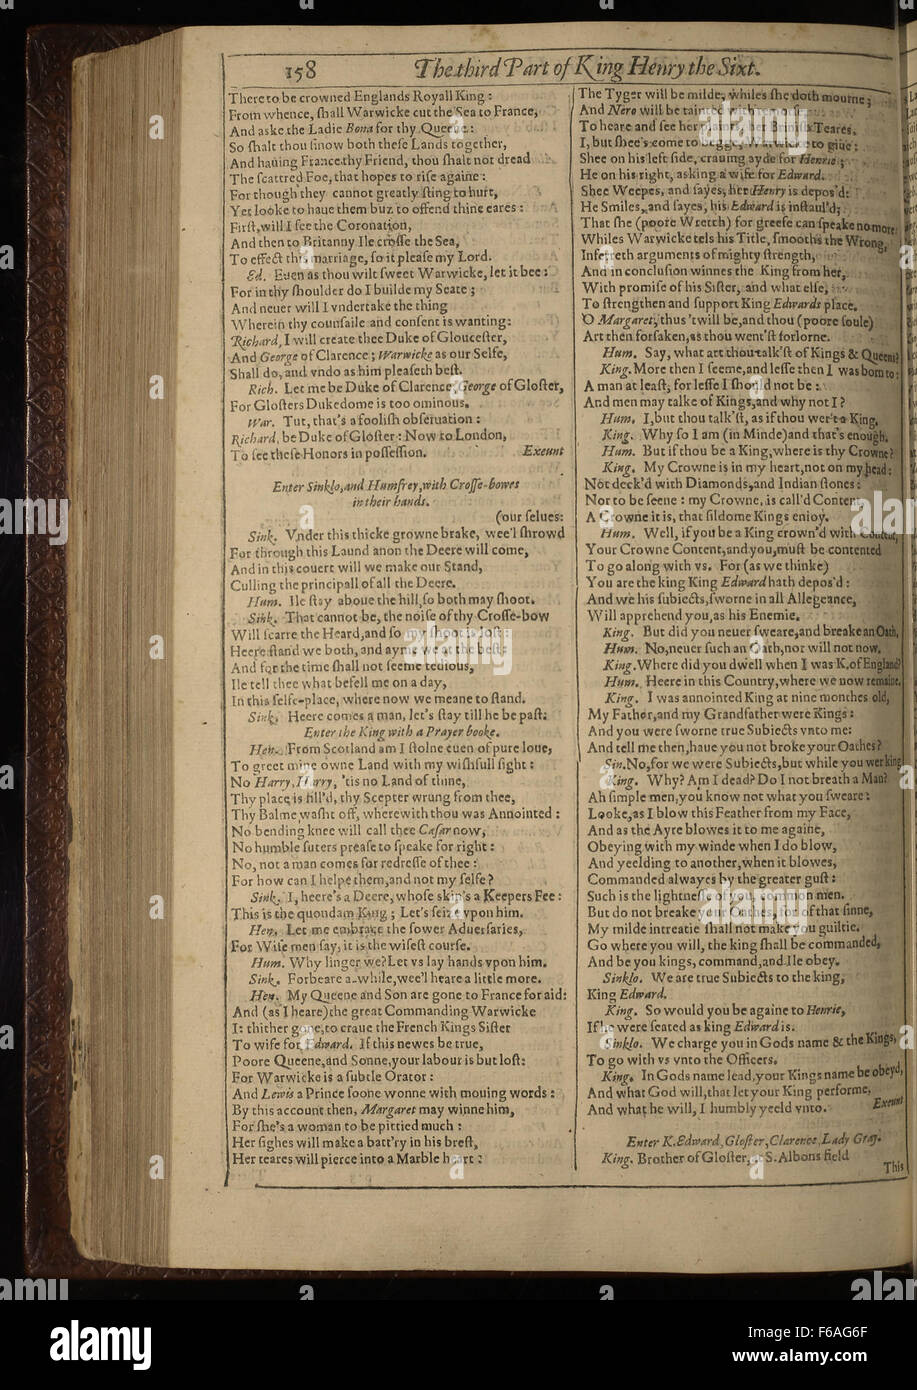 158 The third Part of King Henry the Sixt.
There to be crowned Englands Royall King:
From whence, ſhall Warwicke cut the Sea to France,
And aske the Ladie Bona for thy Queene:
So ſhalt thou ſinow both theſe Lands together,
And hauing France thy Friend, thou ſhalt not dread
The ſcattred Foe, that hopes to riſe againe:
For though they cannot greatly ſting to hurt,
Yet looke to haue them buz to offend thine eares:
Firſt, will I ſee the Coronation,
And then to Britanny Ile croſſe the Sea,
To effect this marriage, ſo it pleaſe my Lord.
Ed. Euen as thou wilt ſweet Warwicke, let it bee:
For in thy ſhoulder do I builde my Seate;
And neuer will I vndertake the thing
Wherein thy counſaile and conſent is wanting:
Richard, I will create thee Duke of Glouceſter,
And George of Clarence; Warwicke as our Selfe,
Shall do, and vndo as him pleaſeth beſt.
Rich. Let me be Duke of Clarence, George of Gloſter,
For Gloſters Dukedome is too ominous.
War. Tut, that's a fooliſh obſeruation:
Richard, be Duke of Gloſter: Now to London,
To ſee theſe Honors in poſſeſſion. Exeunt
Enter Sinklo, and Humfrey, with Croſſe-bowes
in their hands.
(our ſelues:
Sink. Vnder this thicke growne brake, wee'l ſhrowd
For through this Laund anon the Deere will come,
And in this couert will we make our Stand,
Culling the principall of all the Deere.
Hum. Ile ſtay aboue the hill, ſo both may ſhoot.
Sink. That cannot be, the noiſe of thy Croſſe-bow
Will ſcarre the Heard, and ſo my ſhoot is loſt:
Heere ſtand we both, and ayme we at the beſt:
And for the time ſhall not ſeeme tedious,
Ile tell thee what befell me on a day,
In this ſelfe-place, where now we meane to ſtand.
Sink. Heere comes a man, let's ſtay till he be paſt:
Enter the King with a Prayer booke.
Hen. From Scotland am I ſtolne euen of pure loue,
To greet mine owne Land with my wiſhfull ſight:
No Harry, Harry, 'tis no Land of thine,
Thy place is fill'd, thy Scepter wrung from thee,
Thy Balme waſht off, wherewith thou was Annointed:
No bending knee will call thee Cæſar now,
No humble ſuters preaſe to ſpeake for right:
No, not a man comes for redreſſe of thee:
For how can I helpe them, and not my ſelfe?
Sink. I, heere's a Deere, whoſe skin's a Keepers Fee:
This is the quondam King; Let's ſeize vpon him.
Hen. Let me embrace the ſower Aduerſaries,
For Wiſe men ſay, it is the wiſeſt courſe.
Hum. Why linger we? Let vs lay hands vpon him.
Sink. Forbeare a-while, wee'l heare a little more.
Hen. My Queene and Son are gone to France for aid:
And (as I heare) the great Commanding Warwicke
I: thither gone, to craue the French Kings Siſter
To wife for Edward. If this newes be true,
Poore Queene, and Sonne, your labour is but loſt:
For Warwicke is a ſubtle Orator:
And Lewis a Prince ſoone wonne with mouing words:
By this account then, Margaret may winne him,
For ſhe's a woman to be pittied much:
Her ſighes will make a batt'ry in his breſt,
Her teares will pierce into a Marble heart:
The Tyger will be milde, whiles ſhe doth mourne;
And Nero will be tainted with remorſe,
To heare and ſee her plaints, her Briniſh Teares.
I, but ſhee's come to begge, Warwicke to giue:
Shee on his left ſide, crauing ayde for Henrie;
He on his right, asking a wife for Edward.
Shee Weepes, and ſayes, her Henry is depos'd:
He Smiles, and ſayes, his Edward is inſtaul'd;
That ſhe (poore Wretch) for greefe can ſpeake no more:
Whiles Warwicke tels his Title, ſmooths the Wrong,
Inferreth arguments of mighty ſtrength,
And in concluſion winnes the King from her,
With promiſe of his Siſter, and what elſe,
To ſtrengthen and ſupport King Edwards place.
O Margaret, thus 'twill be, and thou (poore ſoule)
Art then forſaken, as thou went'ſt forlorne.
Hum. Say, what art thou talk'ſt of Kings & Queens?
King. More then I ſeeme, and leſſe then I was born to:
A man at leaſt, for leſſe I ſhould not be:
And men may talke of Kings, and why not I?
Hum. I, but thou talk'ſt, as if thou wer't a King.
King. Why ſo I am (in Minde) and that's enough.
Hum. But if thou be a King, where is thy Crowne?
King. My Crowne is in my heart, not on my head:
Not deck'd with Diamonds, and Indian ſtones:
Nor to be ſeene: my Crowne, is call'd Content,
A Crowne it is, that ſildome Kings enioy.
Hum. Well, if you be a King crown'd with Content,
Your Crowne Content, and you, muſt be contented
To go along with vs. For (as we thinke)
You are the king King Edward hath depos'd:
And we his ſubiects, ſworne in all Allegeance,
Will apprehend you, as his Enemie.
King. But did you neuer ſweare, and breake an Oath.
Hum. No, neuer ſuch an Oath, nor will not now.
King. Where did you dwell when I was K. of England?
Hum. Heere in this Country, where we now remaine.
King. I was annointed King at nine monthes old,
My Father, and my Grandfather were Kings:
And you were ſworne true Subiects vnto me:
And tell me then, haue you not broke your Oathes?
Sin. No, for we were Subiects, but while you wer king
King. Why? Am I dead? Do I not breath a Man?
Ah ſimple men, you know not what you ſweare:
Looke, as I blow this Feather from my Face,
And as the Ayre blowes it to me againe,
Obeying with my winde when I do blow,
And yeelding to another, when it blowes,
Commanded alwayes by the greater guſt:
Such is the lightneſſe of you, common men.
But do not breake your Oathes, for of that ſinne,
My milde intreatie ſhall not make you guiltie.
Go where you will, the king ſhall be commanded,
And be you kings, command, and Ile obey.
Sinklo. We are true Subiects to the king,
King Edward.
King. So would you be againe to Henrie,
If he were ſeated as king Edward is.
Sinklo. We charge you in Gods name & the Kings,
To go with vs vnto the Officers.
King. In Gods name lead, your Kings name be obeyd,
And what God will, that let your King performe,
And what he will, I humbly yeeld vnto. Exeunt
Enter K. Edward, Gloſter, Clarence, Lady Gray.
King. Brother of Gloſter, at S. Albons field
This
alamy
Image ID: F6AG6F
www.alamy.com